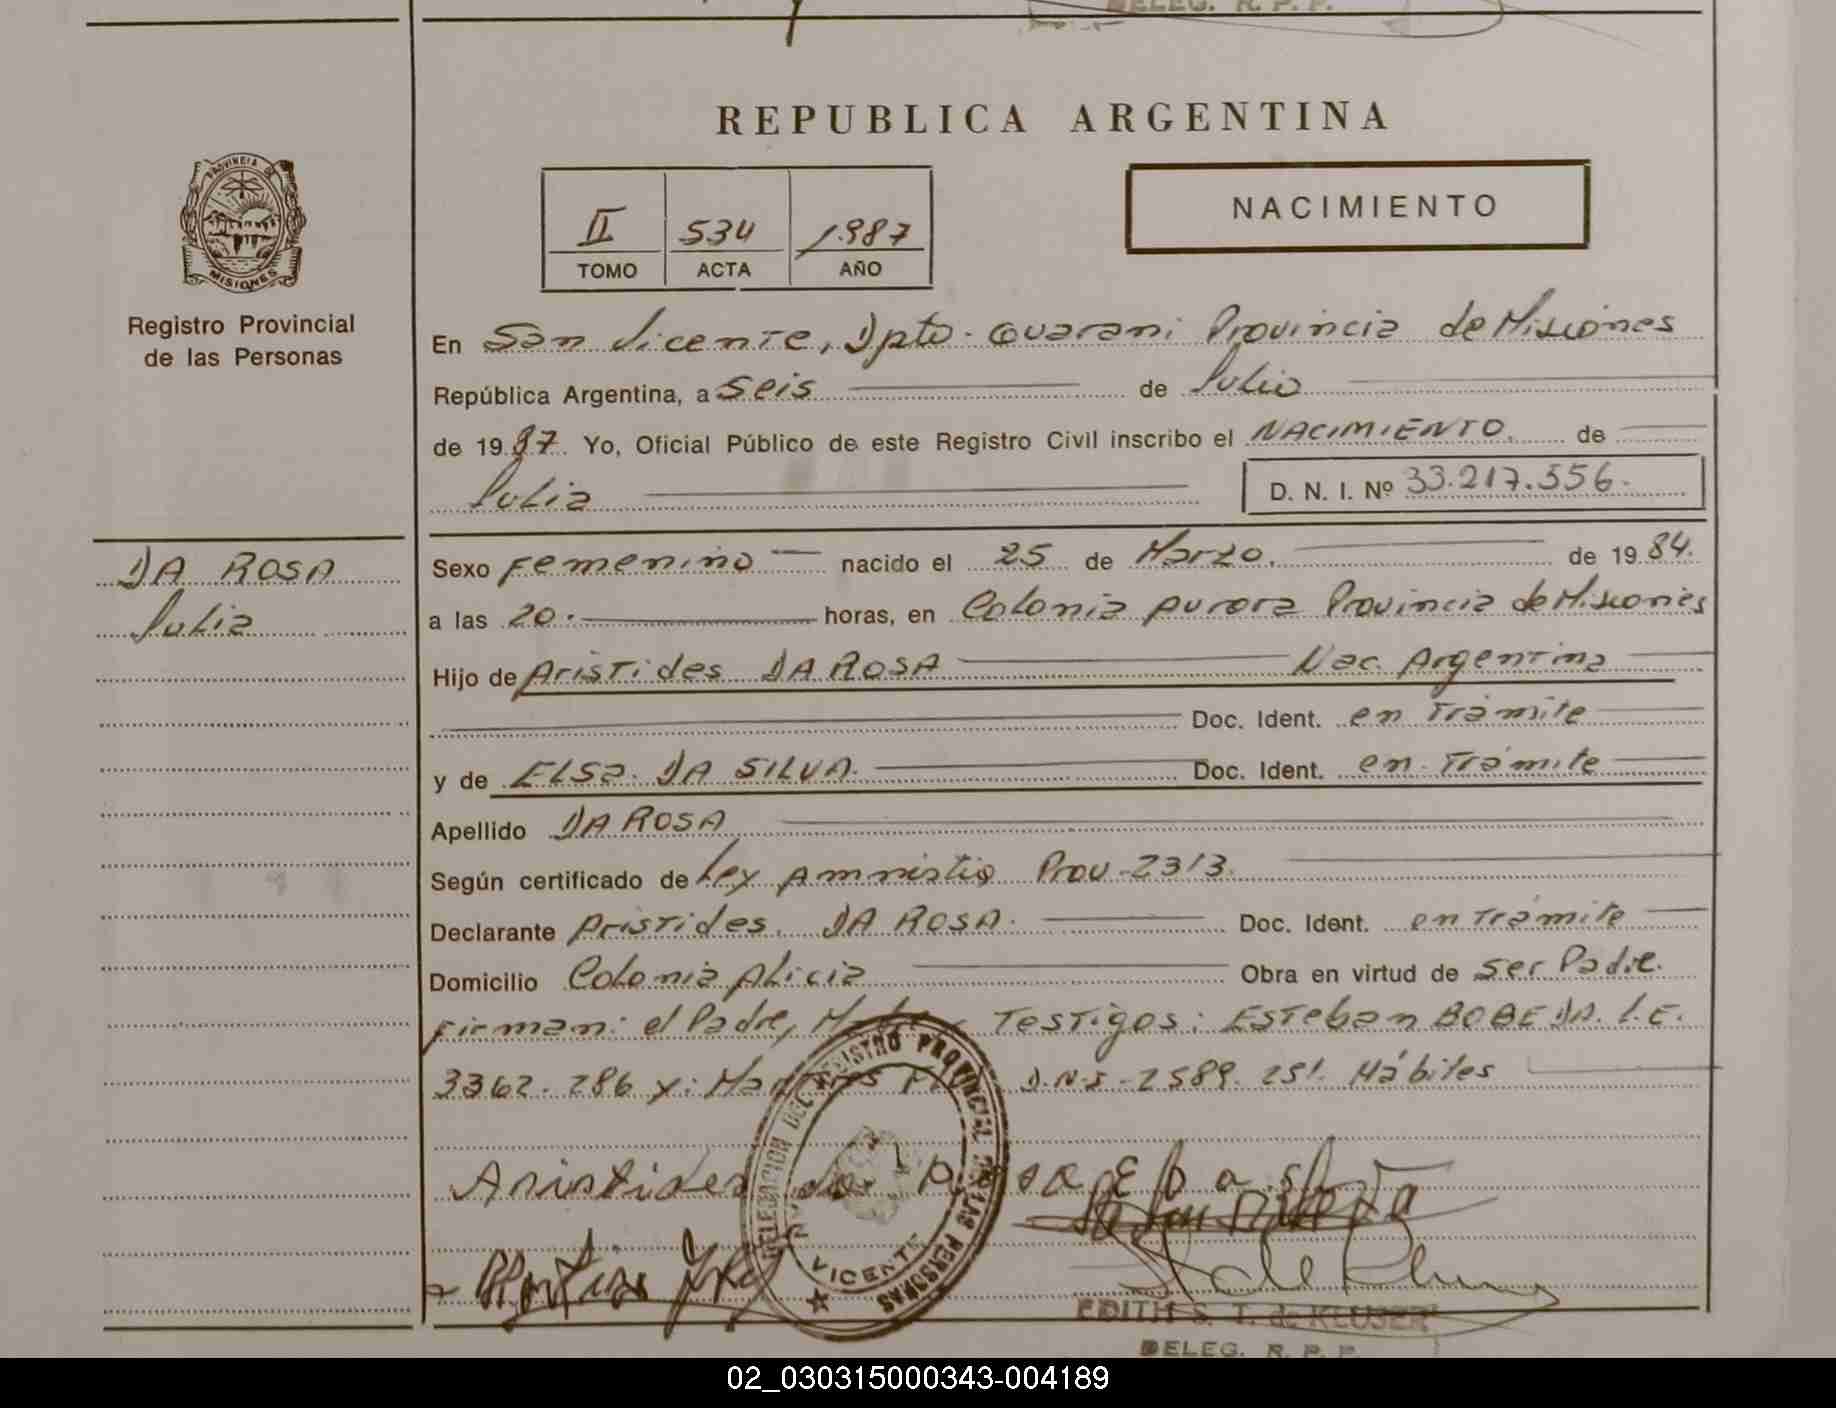 DELEG. R. P. P.
REPUBLICA ARGENTINA
PROVINCIA DE
MISIONES
II 534 1.987
TOMO ACTA AÑO
NACIMIENTO
Registro Provincial
de las Personas
En San Vicente, Dpto. Guarani Provincia de Misiones
República Argentina, a Seis de Julio
de 19 87. Yo, Oficial Público de este Registro Civil inscribo el NACIMIENTO. de
Julia D. N. I. Nº 33.217.556.
DA ROSA
Julia
Sexo Femenino nacido el 25 de Marzo. de 19 84.
a las 20. horas, en Colonia Aurora Provincia de Misiones
Hijo de Aristides DA ROSA Nac. Argentina
Doc. Ident. en Trámite
y de ELSa. DA SILVA. Doc. Ident. en Trámite
Apellido DA ROSA
Según certificado de Ley Amnistia Prov-2313.
Declarante Aristides. DA ROSA. Doc. Ident. en Trámite
Domicilio Colonia Alicia Obra en virtud de ser Padre.
Firman: el Padre, Testigos: Esteban BOBEDA. L.E.
3362.286 y: D.N.I-2589.251. Hábiles
DELEGACION DEL REGISTRO PROVINCIAL DE LAS PERSONAS
VICENTE
Aristides da Rosa
EDITH S. T. de KLUSER
DELEG. R. P. P.
02_030315000343-004189